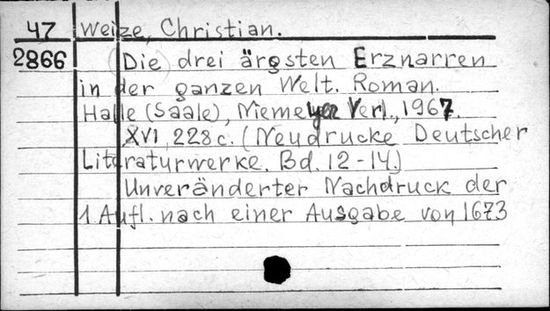 47 Weize, Christian.
2866 (Die) drei ärgsten Erznarren
in der ganzen Welt. Roman.
Halle (Saale), Niemeyer Verl., 1967.
XVI, 228 c. (Neudrucke Deutscher
Literaturwerke. Bd. 12-14.)
Unveränderter Nachdruck der
1. Aufl. nach einer Ausgabe von 1673